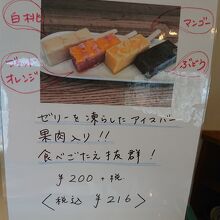 白桃
マンゴー
オレンジ
ぶどう
ゼリーを凍らしたアイスバー
果肉入り!!
食べごたえ抜群!
¥200+税
〈税込 ¥216〉